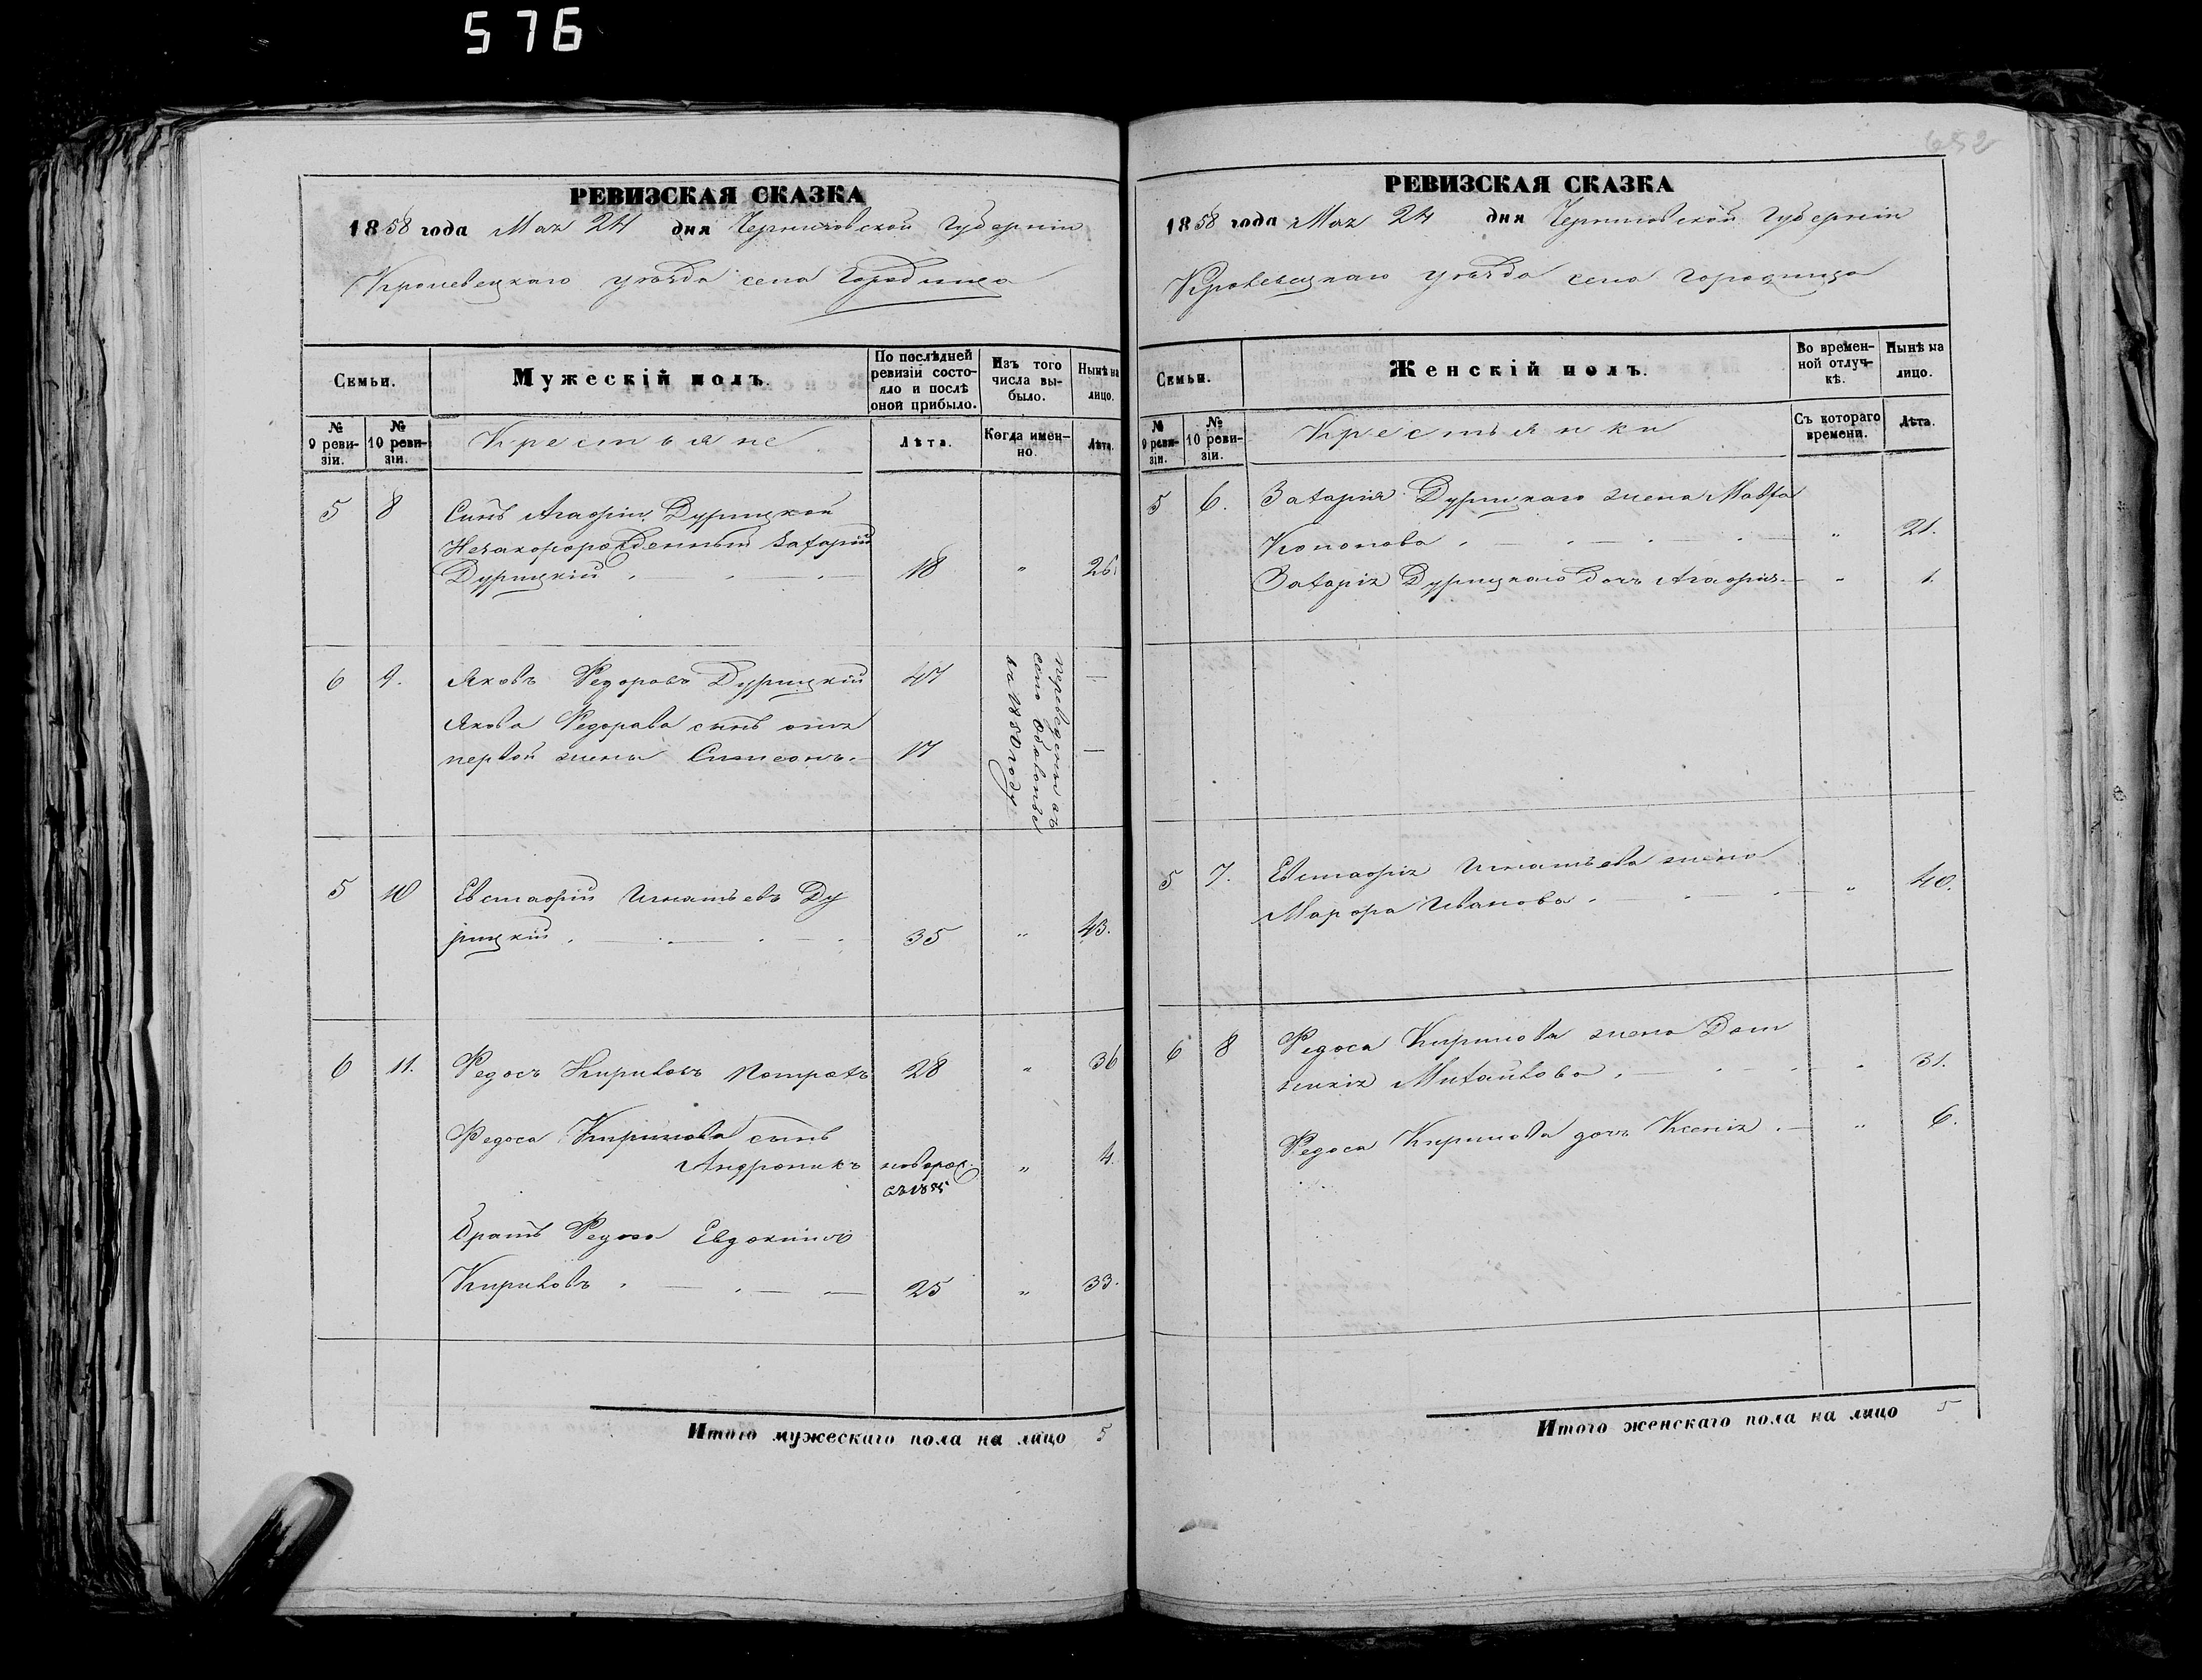 576
652
РЕВИЗСКАЯ СКАЗКА
1858 года Мая 24 дня Черниговской Губерніи
Кролевецкаго уѣзда села Городища
Семьи.
Мужескій полъ.
По послѣдней ревизіи состояло и послѣ оной прибыло.
Изъ того числа выбыло.
Нынѣ на лицо.
№ 9 ревизіи.
№ 10 ревизіи.
Крестьяне
Лѣта.
Когда именно.
Лѣта.
5 8 Сынъ Агафіи Дурицкой
Незакорожденный Захарій
Дурицкій 18 " 26.
6 9. Яковъ Федоровъ Дурицкій 47 —
Якова Федорова сынъ отъ
первой жены Симеонъ. 17 —
переведены въ
село Оболонье
въ 1850 году
5 10 Евстафій Игнатьевъ Ду
рицкій 35 " 43.
6 11. Федосъ Кириковъ 28 " 36
Федоса Кирикова сынъ
Андроникъ новорож. " 4.
Братъ Федоса Евдокимъ
Кириковъ 25 " 33.
Итого мужескаго пола на лицо 5
РЕВИЗСКАЯ СКАЗКА
1858 года Мая 24 дня Черниговской Губерніи
Кролевецкаго уѣзда села Городища
Семьи.
Женскій полъ.
Во временной отлучкѣ.
Нынѣ на лицо.
№ 9 ревизіи.
№ 10 ревизіи.
Крестьянки
Съ котораго времени.
Лѣта.
5 6. Захарія Дурицкаго жена Мавра
Кононова " 21.
Захарія Дурицкаго дочь Агафія " 1.
5 7. Евстафія Игнатьева жена
Марфа Иванова " 40.
6 8 Федоса Кирикова жена Дом
Михайлова " 31.
Федоса Кирикова дочь Ксенія " 6.
Итого женскаго пола на лицо 5